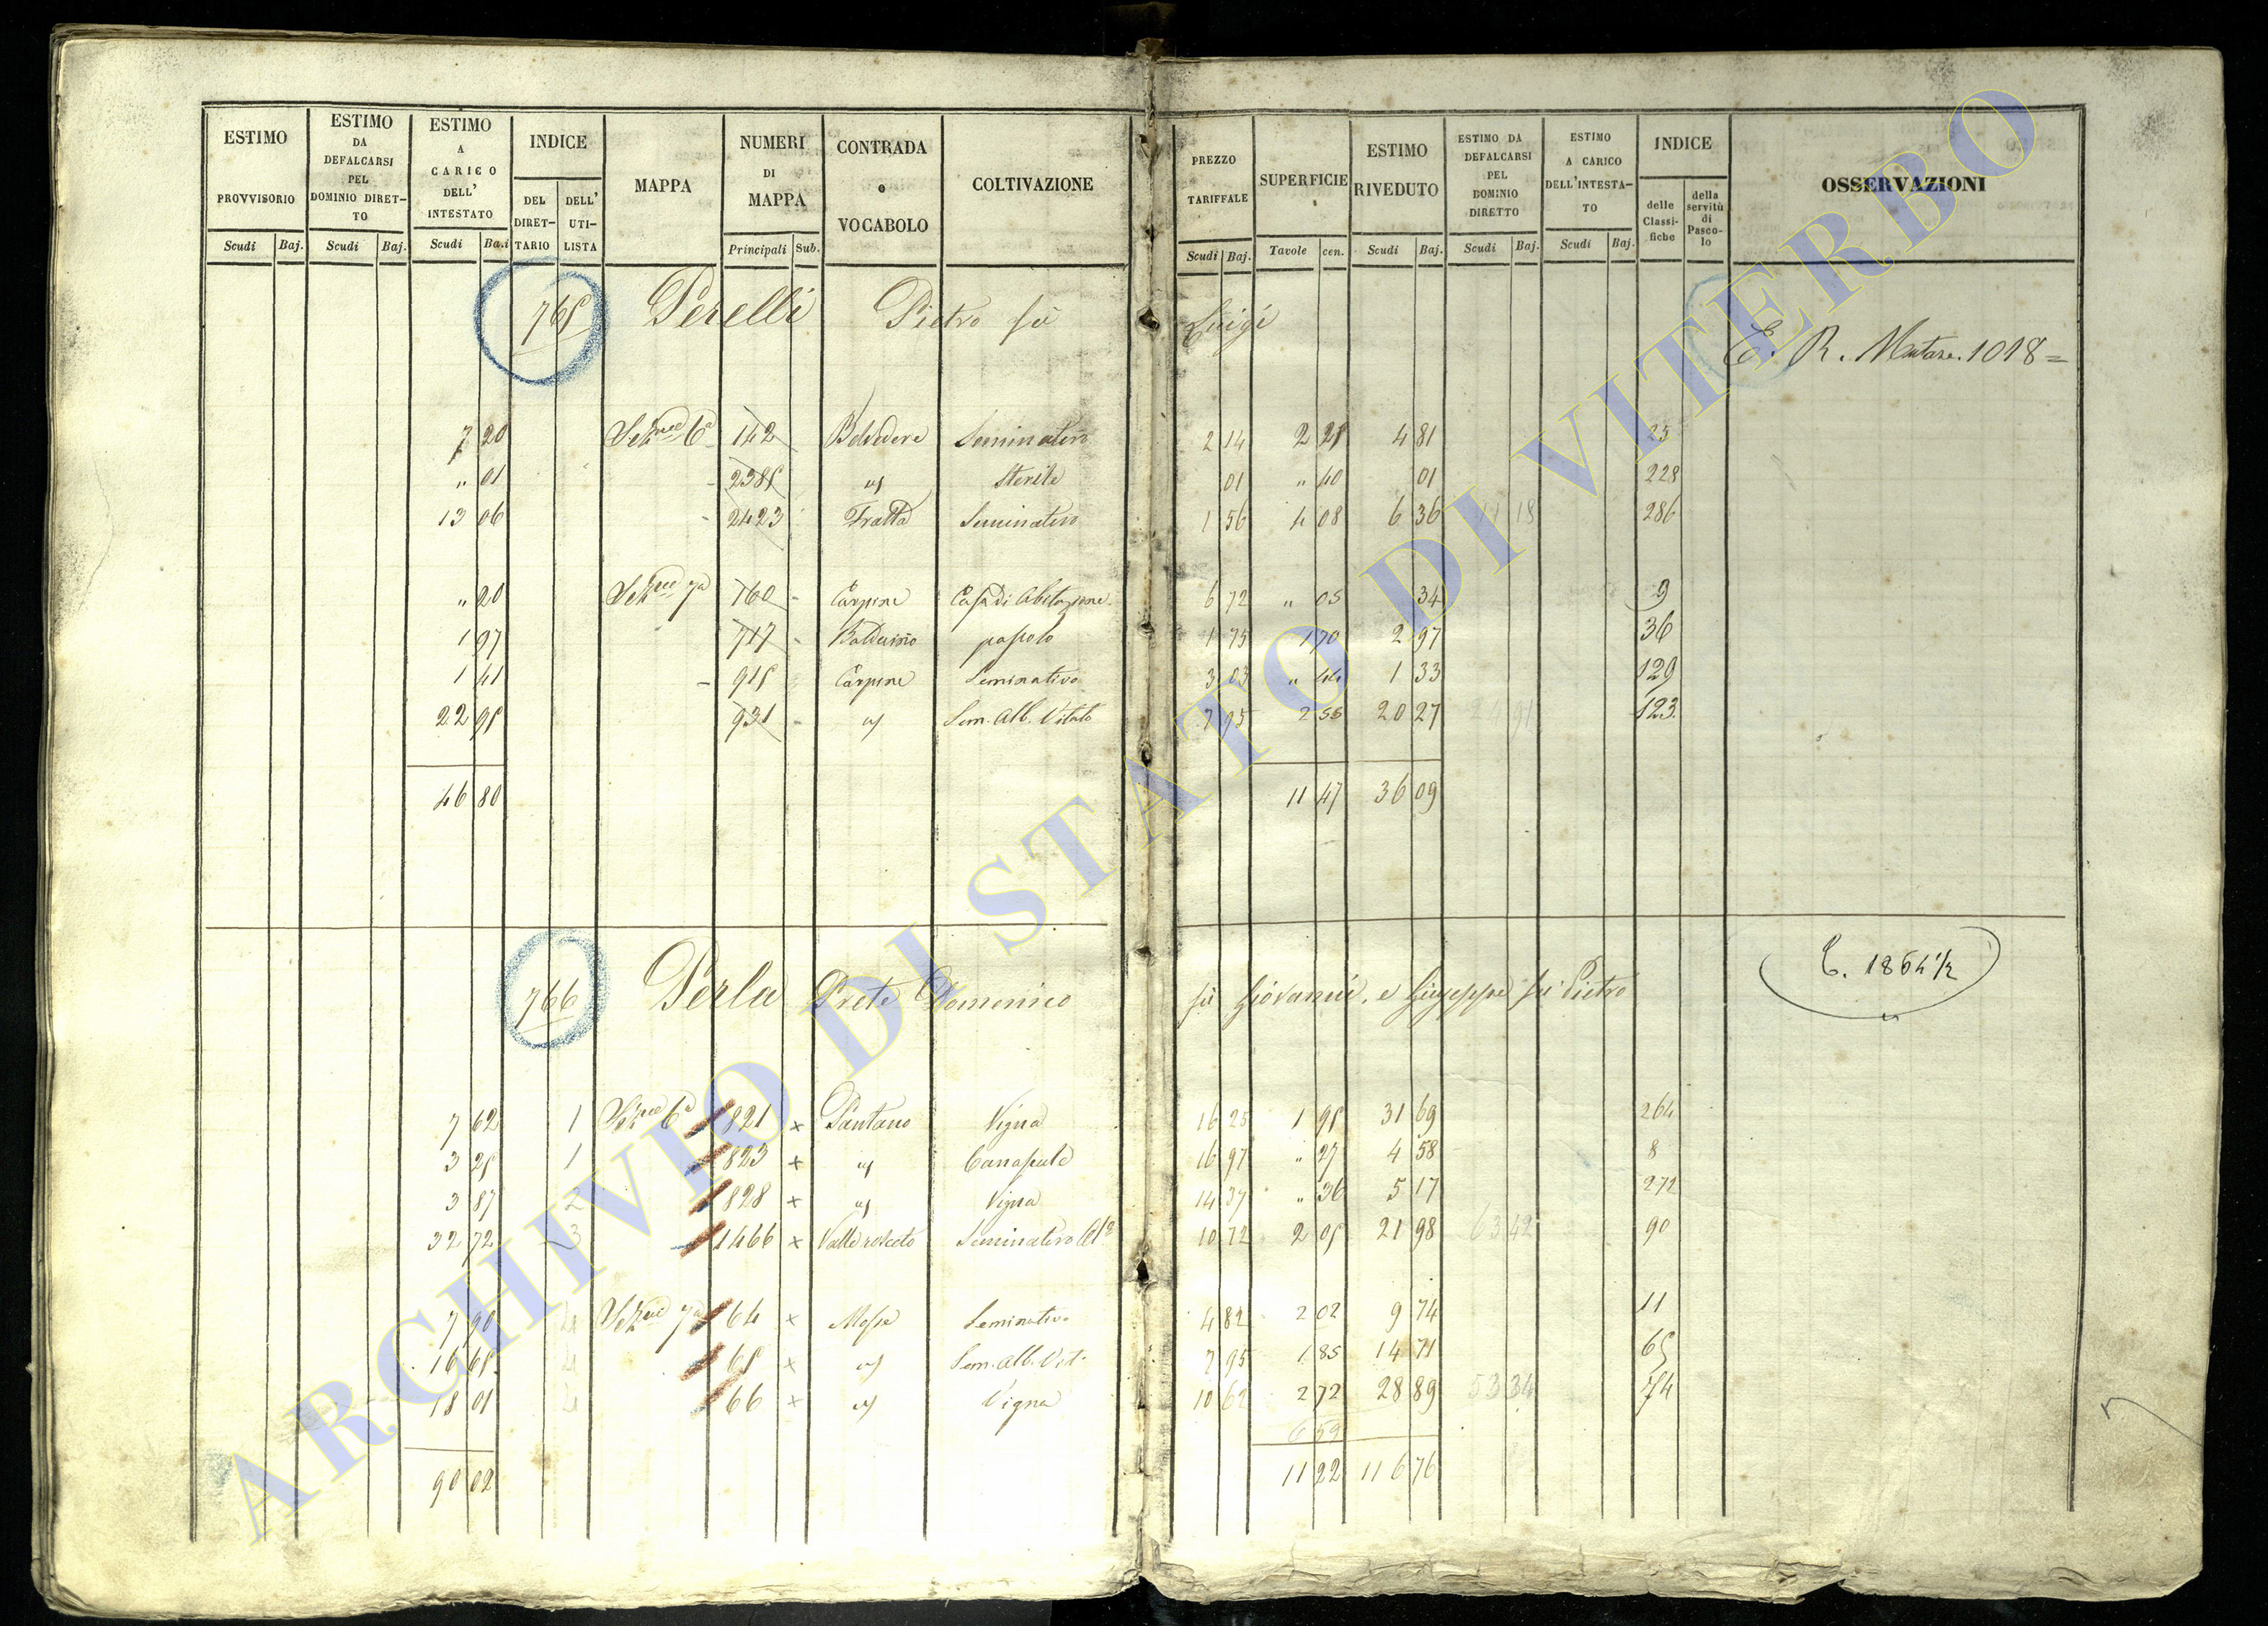 ESTIMO PROVVISORIO Scudi Baj.
ESTIMO DA DEFALCARSI PEL DOMINIO DIRET-TO Scudi Baj.
ESTIMO A CARICO DELL' INTESTATO Scudi Baj.
INDICE DEL DIRET-TARIO DELL' UTI-LISTA
MAPPA
NUMERI DI MAPPA Principali Sub.
CONTRADA o VOCABOLO
COLTIVAZIONE
PREZZO TARIFFALE Scudi Baj.
SUPERFICIE Tavole cen.
ESTIMO RIVEDUTO Scudi Baj.
ESTIMO DA DEFALCARSI PEL DOMINIO DIRETTO Scudi Baj.
ESTIMO A CARICO DELL'INTESTA-TO Scudi Baj.
INDICE delle Classi-fiche della servitù di Pasco-lo
OSSERVAZIONI
765 Perelli Pietro fù Luigi
E. R. Mutaz. 1018=
7 20 Sezne 6a 142 Belvedere Seminativo 2 14 2 25 4 81 25
" 01 2385 Sterile 01 " 40 01 228
13 06 2423 Fratta Seminativo 1 56 4 08 6 36 11 18 286
" 20 Sezne 7a 160 Carpine Casa di Abitazione 6 72 " 05 34 9
1 97 717 pascolo 1 75 1 70 2 97 36
1 41 915 Carpine Seminativo 3 03 " 44 1 33 129
22 95 931 Sem. Alb. Vitato 7 95 2 55 20 27 24 91 123
46 80 11 47 36 09
766 Perla Prete Domenico fù Giovanni, e Giuseppe fù Pietro
7 62 1 Sezne 6a 821 x Pantano Vigna 16 25 1 95 31 69 264
3 25 1 823 x Canapule 16 97 " 27 4 58 8
3 87 2 828 x Vigna 14 37 " 36 5 17 272
32 72 3 1466 x Seminativo 10 72 2 05 21 98 63 42 90
7 90 4 Sezne 7a 64 x Seminativo 4 82 2 02 9 74 11
16 65 4 65 x Sem. Alb. Vit. 7 95 1 85 14 71 65
18 01 4 66 x Vigna 10 62 2 72 28 89 53 34 74
6 59
90 02 11 22 116 76
ARCHIVIO DI STATO DI VITERBO